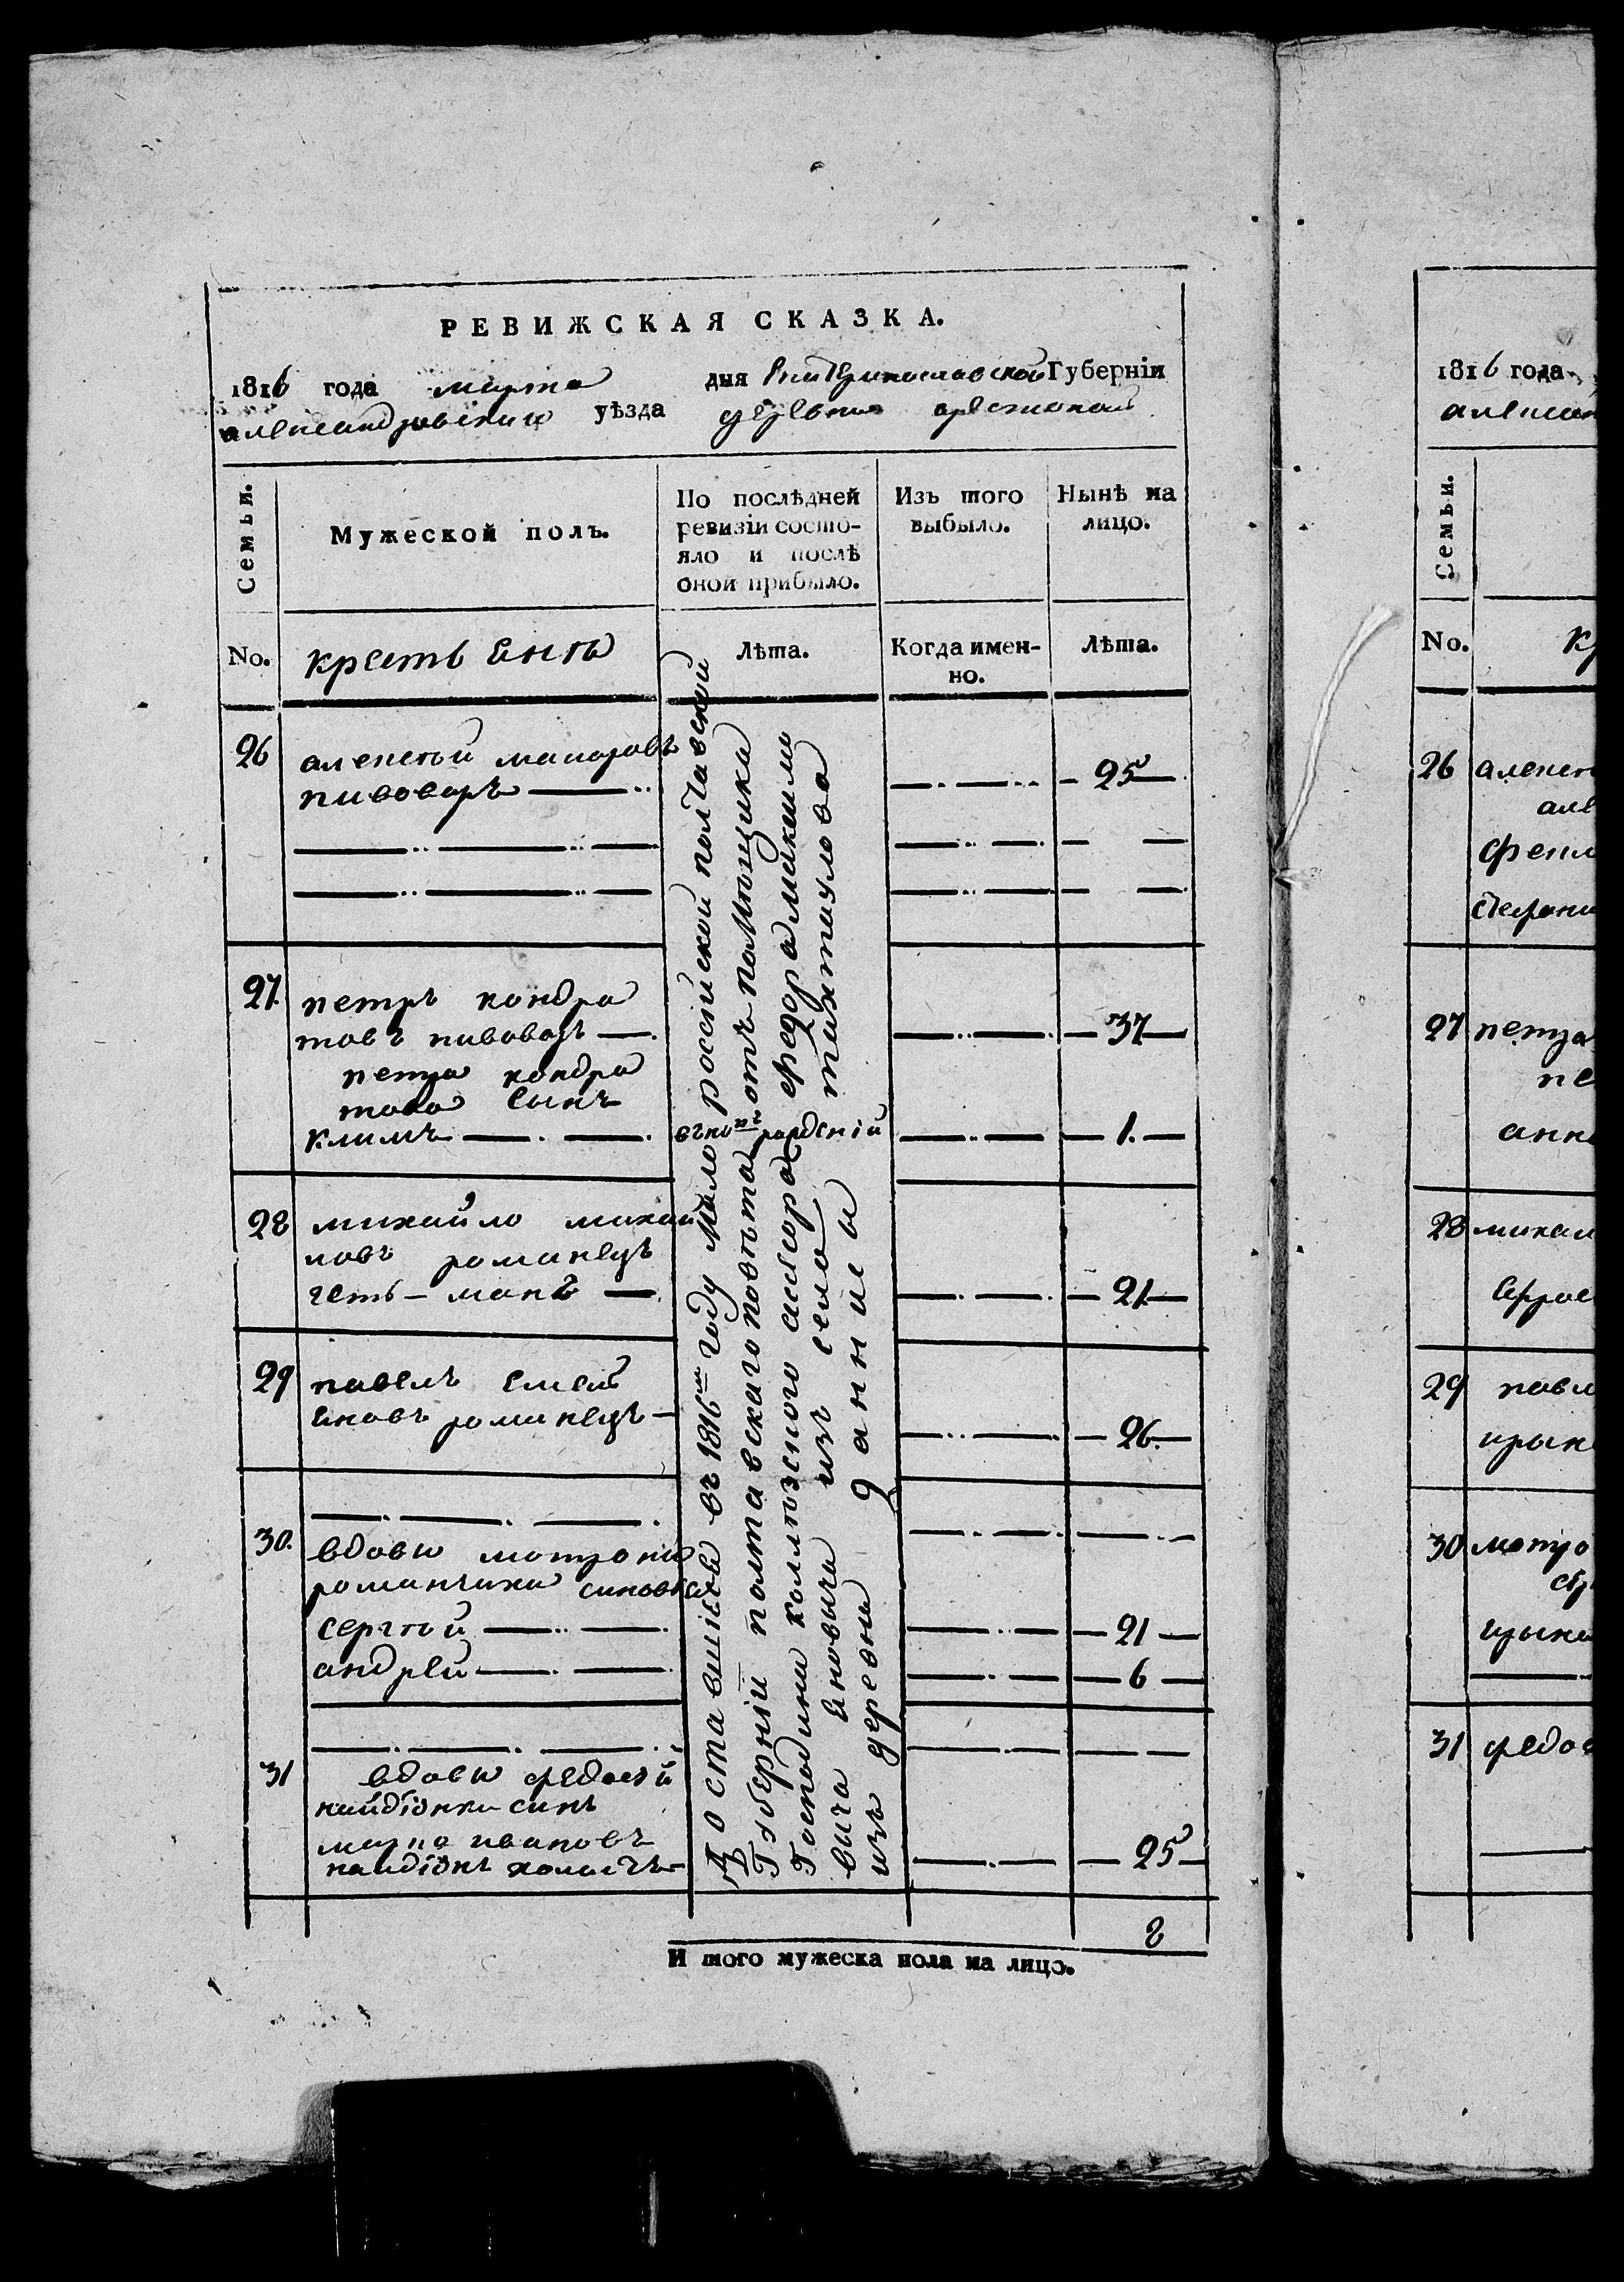 РЕВИЖСКАЯ СКАЗКА.
1816 года марта дня Екатеринославской Губерніи
александровскаи уѣзда деревни
Семьи.
Мужеской полъ.
По послѣдней
ревизіи состо-
яло и послѣ
оной прибыло.
Изъ того
выбыло.
Нынѣ на
лицо.
No.
крестьянѣ
лѣта.
Когда имен-
но.
лѣта.
26 алексѣй макаровъ
пивоваръ 25
27. петръ кондра
товъ пивоваръ 37
петра кондра
това сынъ
климъ рожденій 1.
28 михайло михай
ловъ романецъ
21
29 павелъ емель
яновъ романецъ 26.
30. вдовы матроны
романчихи синовья
сергѣй 21
андрей 6
31 вдовы федосѣй
найдіонки синъ
марко ивановъ
найдіонъ холостъ 25
Доставшіеся въ 1816м году малороссійской полтавской
Губерніи полтавского повѣта отъ помѣщика
Господина коллѣзского ассесора федора максимо
вича яновыча изъ села тихтаулова
изъ деревни даниеы
8
И того мужеска пола на лицо.
1816 года
алексан
Семьи.
No.
кр
26 алексѣ
але
фекл
стефани
27 петра
пе
анн
28 михаи
ефрос
29 павл
ирын
30 матро
сер
ирына
31 федос